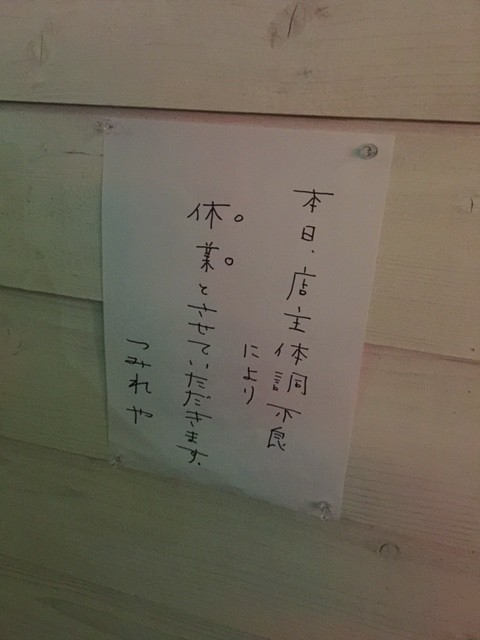 本日、店主体調不良
により
休業とさせていただきます。
つみれや